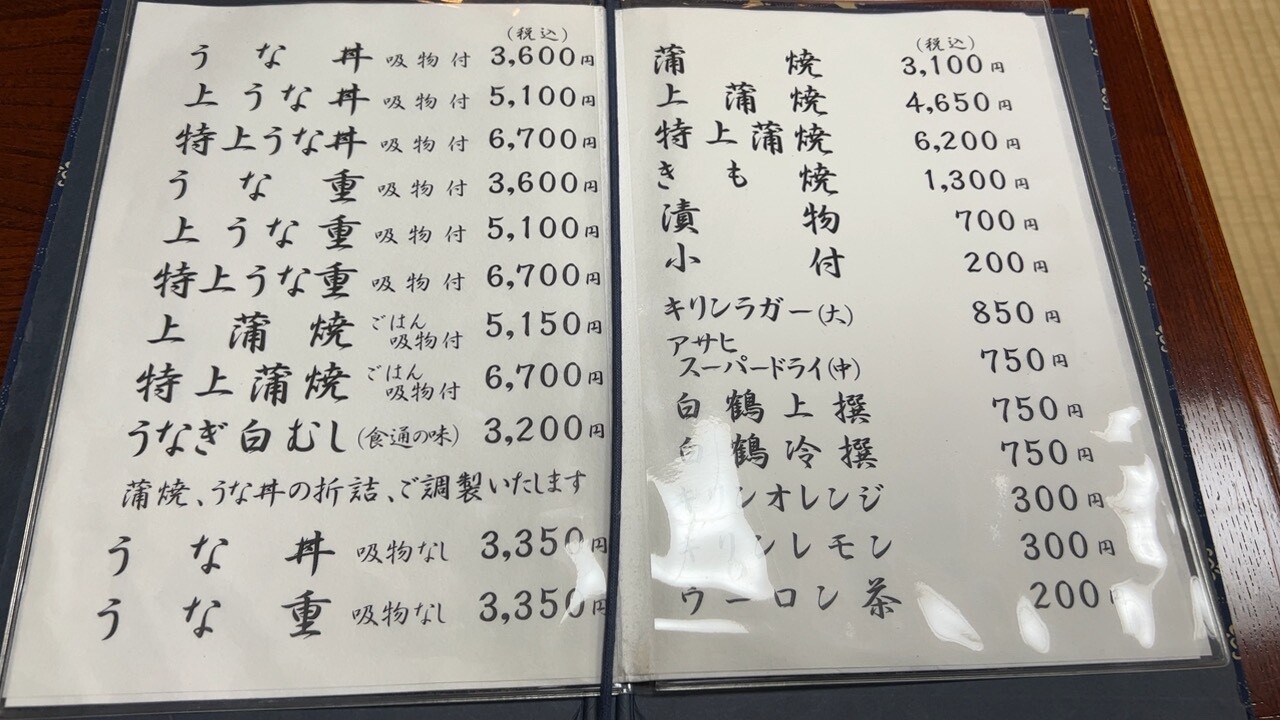 (税込)
うな丼 吸物付 3,600円
上うな丼 吸物付 5,100円
特上うな丼 吸物付 6,700円
うな重 吸物付 3,600円
上うな重 吸物付 5,100円
特上うな重 吸物付 6,700円
上蒲焼 ごはん吸物付 5,150円
特上蒲焼 ごはん吸物付 6,700円
うなぎ白むし(食通の味) 3,200円
蒲焼、うな丼の折詰、ご調製いたします
うな丼 吸物なし 3,350円
うな重 吸物なし 3,350円
(税込)
蒲焼 3,100円
上蒲焼 4,650円
特上蒲焼 6,200円
きも焼 1,300円
漬物 700円
小付 200円
キリンラガー(大) 850円
アサヒ
スーパードライ(中) 750円
白鶴上撰 750円
白鶴冷撰 750円
キリンオレンジ 300円
キリンレモン 300円
ウーロン茶 200円